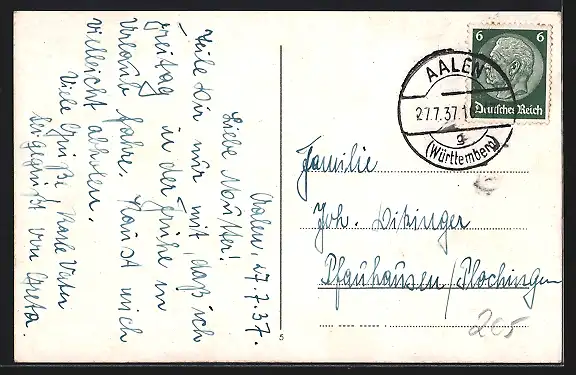 Aalen, 27.7.37.
Liebe Mutter!
Teile Dir nur mit, daß ich
Freitag in der Frühe in
Urlaub fahre. Kannst mich
vielleicht abholen.
Viele Grüße, Vater
beigegrüßt von Greta.
6 6
Deutsches Reich
AALEN
27.7.37.1
g
(Württemberg)
Familie
Joh. Ditzinger
Pfauhausen/Plochingen
5
205